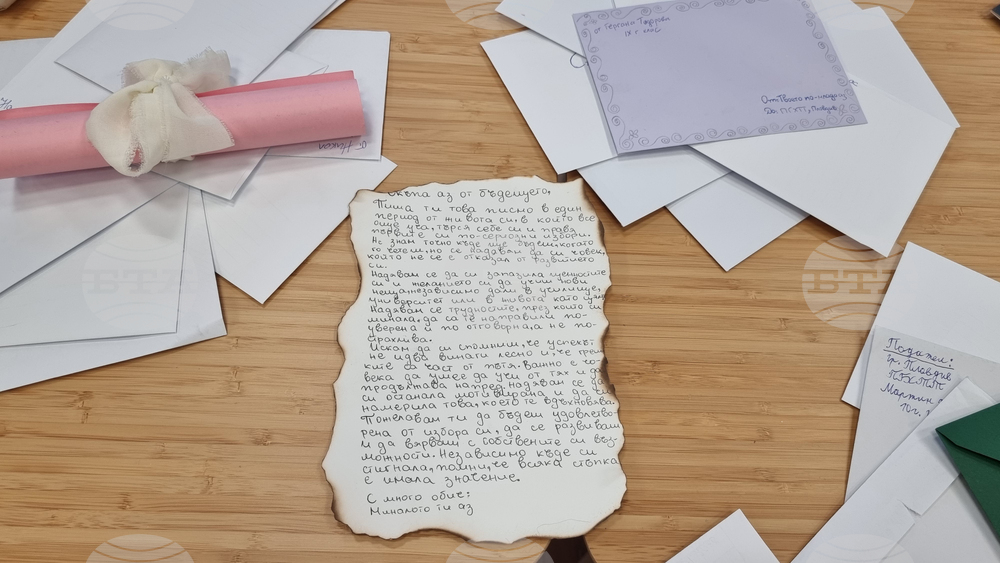 от Гергана Тодорова
IX г клас
От: Твоето по-младо
до: ПГХТТ, Пловдив
от Никол
Скъпа аз от бъдещето,
Пиша ти това писмо в един
период от живота си, в който все
още уча, търся себе си и правя
първите си по-сериозни избори.
Не знам точно къде ще бъдеш, когато
го четеш, но се надявам да си човек,
който не се е отказал от развитието
си.
Надявам се да си запазила ценностите
си и желанието си да учиш нови
неща, независимо дали в училище,
университет или в живота като цяло.
Надявам се трудностите, през които си
минала, да са те направили по-
уверена и по отговорна, а не по-
страхлива.
Искам да си спомниш, че успехът
не идва винаги лесно и, че греш
ките са част от пътя. Важно е чо-
века да умее да учи от тях и да
продължава напред. Надявам се да
си останала мотивирана и да си
намерила това, което те вдъхновява.
Пожелавам ти да бъдеш удовлетво-
рена от избора си, да се развиваш
и да вярваш с собствените си въз-
можности. Независимо къде си
стигнала, помни, че всяка стъпка
е имала значение.
С много обич:
Миналото ти аз
Подател:
гр. Пловдив
ПГХТТ
Мартин
10 г.
БТА